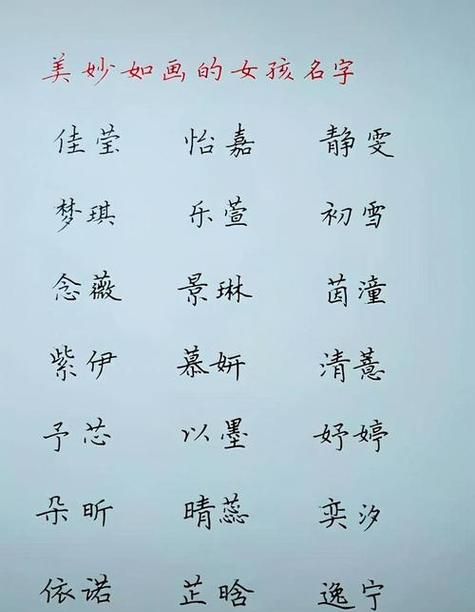 美妙如画的女孩名字
佳莹 怡嘉 静雯
梦琪 乐萱 初雪
念薇 景琳 茵潼
紫伊 慕妍 清薏
予芯 以墨 妤婷
朵昕 晴蕊 奕汐
依诺 芷晗 逸宁